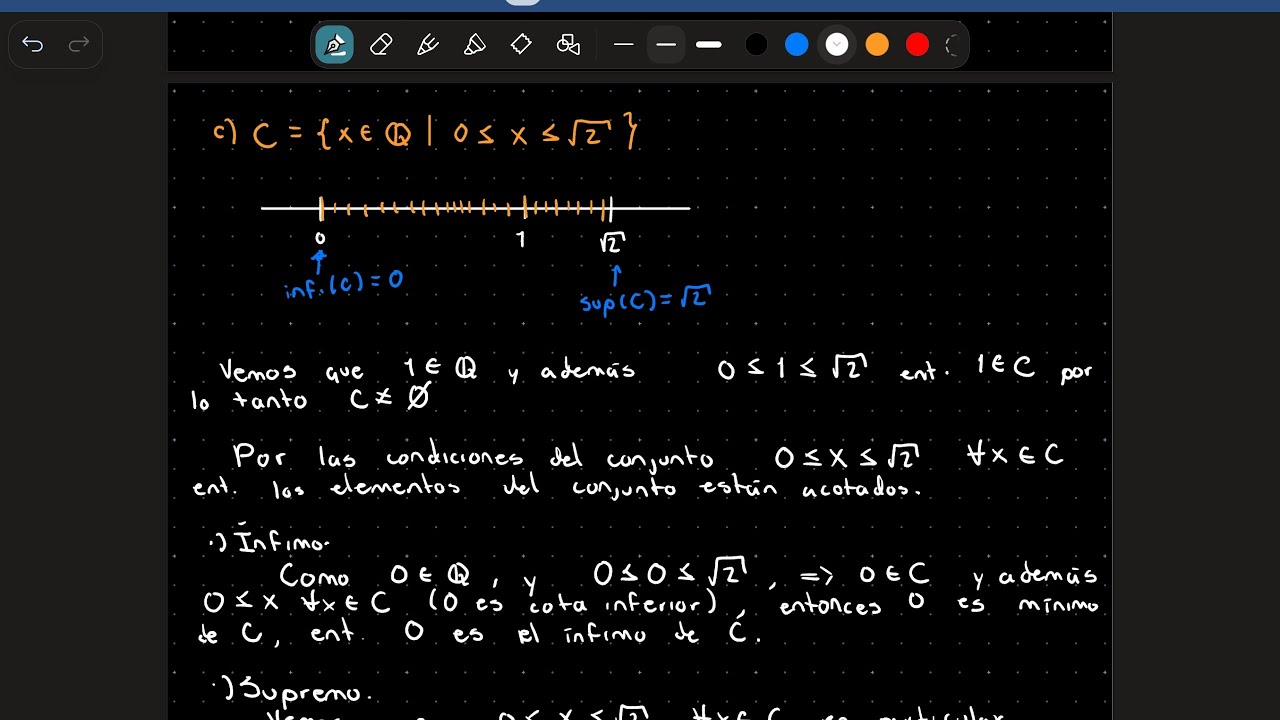 c) C = {x ∈ ℚ | 0 ≤ x ≤ √2}
0 1 √2
inf.(C) = 0
sup(C) = √2
Vemos que 1 ∈ ℚ y además 0 ≤ 1 ≤ √2 ent. 1 ∈ C por
lo tanto C ≠ ∅
Por las condiciones del conjunto 0 ≤ x ≤ √2 ∀x ∈ C
ent. los elementos del conjunto están acotados.
·) Ínfimo.
Como 0 ∈ ℚ, y 0 ≤ 0 ≤ √2, => 0 ∈ C y además
0 ≤ x ∀x ∈ C (0 es cota inferior), entonces 0 es mínimo
de C, ent. 0 es el ínfimo de C.
·) Supremo.
0 ≤ x ≤ √2 ∀x ∈ C